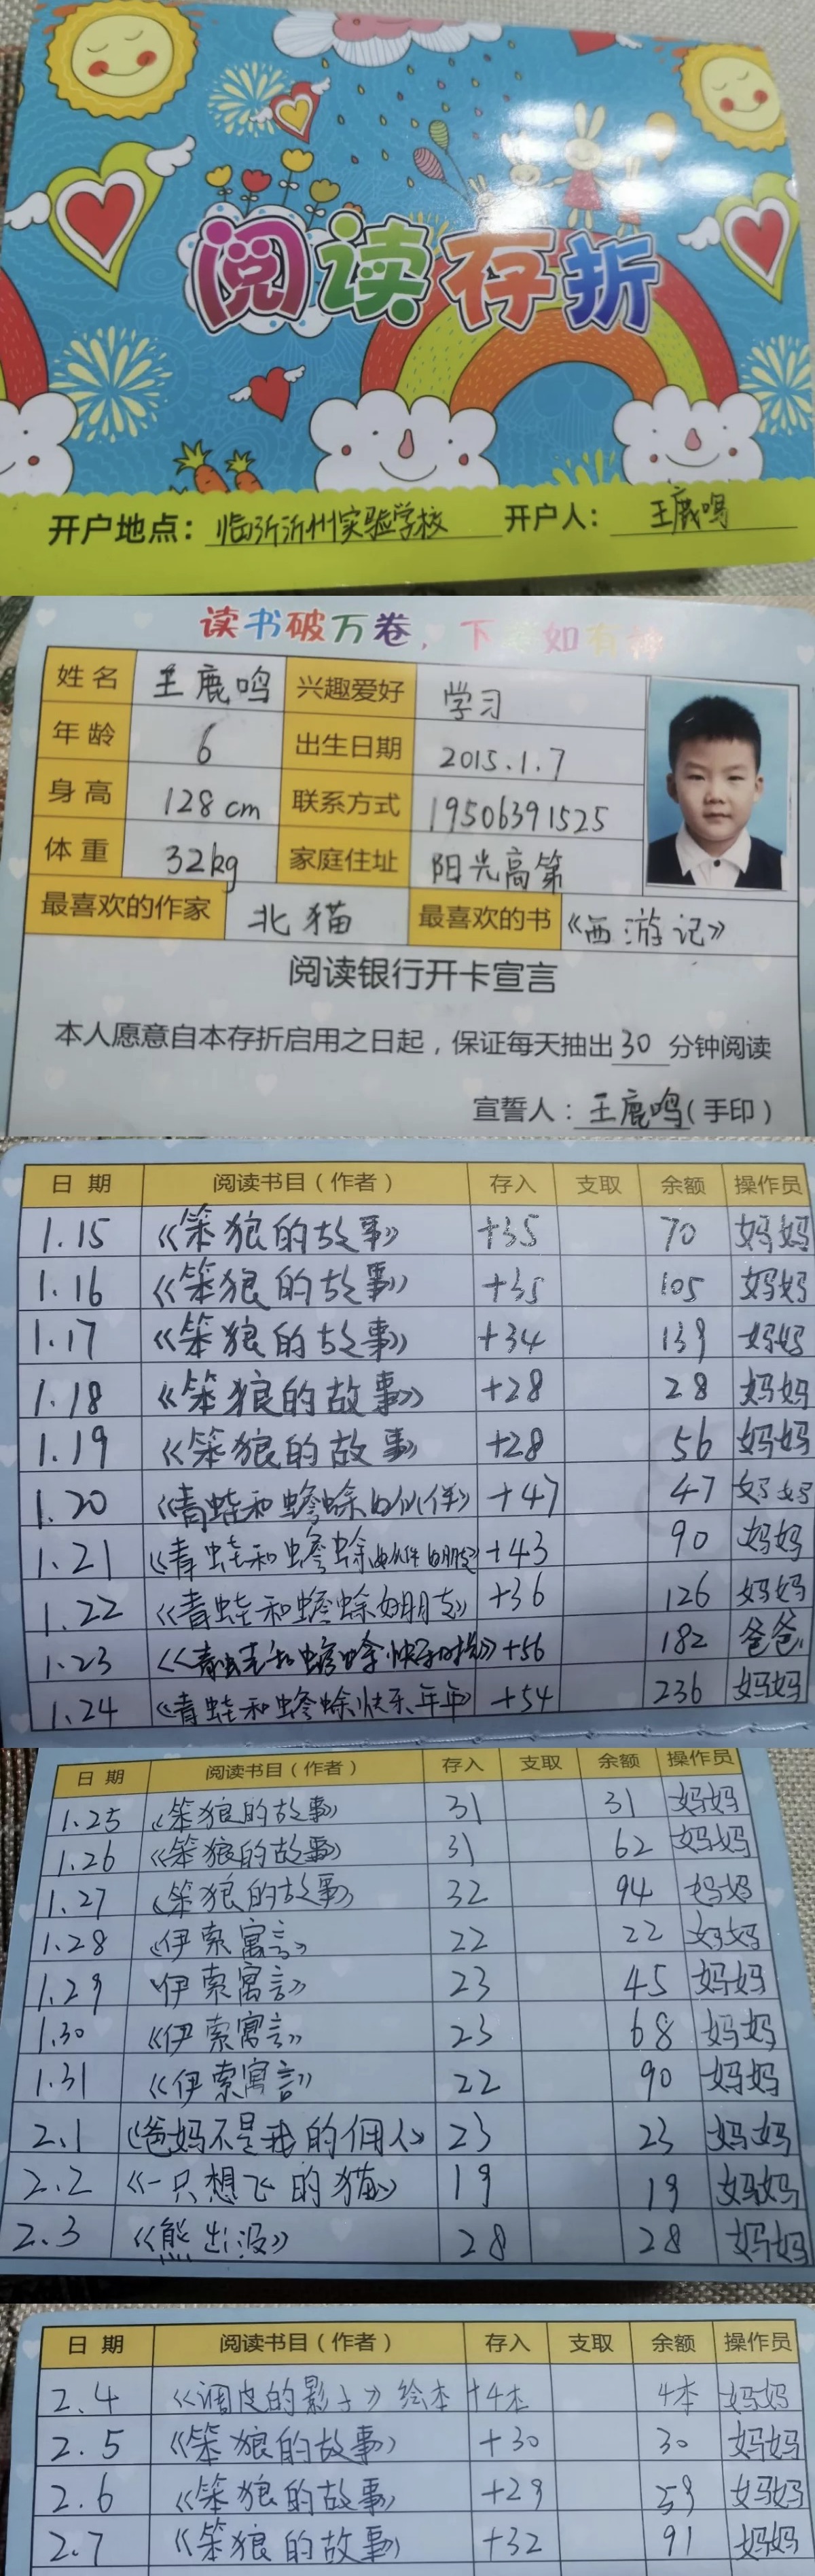 阅读存折
开户地点：临沂沂州实验学校 开户人：王鹿鸣
读书破万卷，下笔如有神
姓名 王鹿鸣 兴趣爱好 学习
年龄 6 出生日期 2015.1.7
身高 128cm 联系方式 19506391525
体重 32kg 家庭住址 阳光高第
最喜欢的作家 北猫 最喜欢的书 《西游记》
阅读银行开卡宣言
本人愿意自本存折启用之日起，保证每天抽出30分钟阅读
宣誓人：王鹿鸣(手印)
日期 阅读书目(作者) 存入 支取 余额 操作员
1.15 《笨狼的故事》 +35 70 妈妈
1.16 《笨狼的故事》 +35 105 妈妈
1.17 《笨狼的故事》 +34 139 妈妈
1.18 《笨狼的故事》 +28 28 妈妈
1.19 《笨狼的故事》 +28 56 妈妈
1.20 《青蛙和蟾蜍 好伙伴》 +47 47 妈妈
1.21 《青蛙和蟾蜍 +43 90 妈妈
1.22 《青蛙和蟾蜍好朋友》 +36 126 妈妈
1.23 《青蛙和蟾蜍快乐时光》 +56 182 爸爸
1.24 《青蛙和蟾蜍快乐年年》 +54 236 妈妈
日期 阅读书目(作者) 存入 支取 余额 操作员
1.25 《笨狼的故事》 31 31 妈妈
1.26 《笨狼的故事》 31 62 妈妈
1.27 《笨狼的故事》 32 94 妈妈
1.28 《伊索寓言》 22 22 妈妈
1.29 《伊索寓言》 23 45 妈妈
1.30 《伊索寓言》 23 68 妈妈
1.31 《伊索寓言》 22 90 妈妈
2.1 《爸妈不是我的佣人》 23 23 妈妈
2.2 《一只想飞的猫》 19 19 妈妈
2.3 《熊出没》 28 28 妈妈
日期 阅读书目(作者) 存入 支取 余额 操作员
2.4 《调皮的影子》绘本 +4本 4本 妈妈
2.5 《笨狼的故事》 +30 30 妈妈
2.6 《笨狼的故事》 +29 59 妈妈
2.7 《笨狼的故事》 +32 91 妈妈